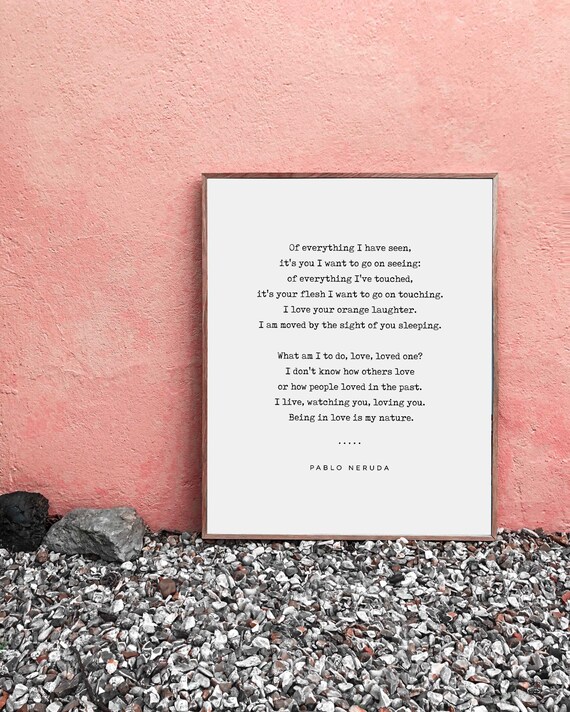 Of everything I have seen,
it's you I want to go on seeing:
of everything I've touched,
it's your flesh I want to go on touching.
I love your orange laughter.
I am moved by the sight of you sleeping.
What am I to do, love, loved one?
I don't know how others love
or how people loved in the past.
I live, watching you, loving you.
Being in love is my nature.
.....
PABLO NERUDA